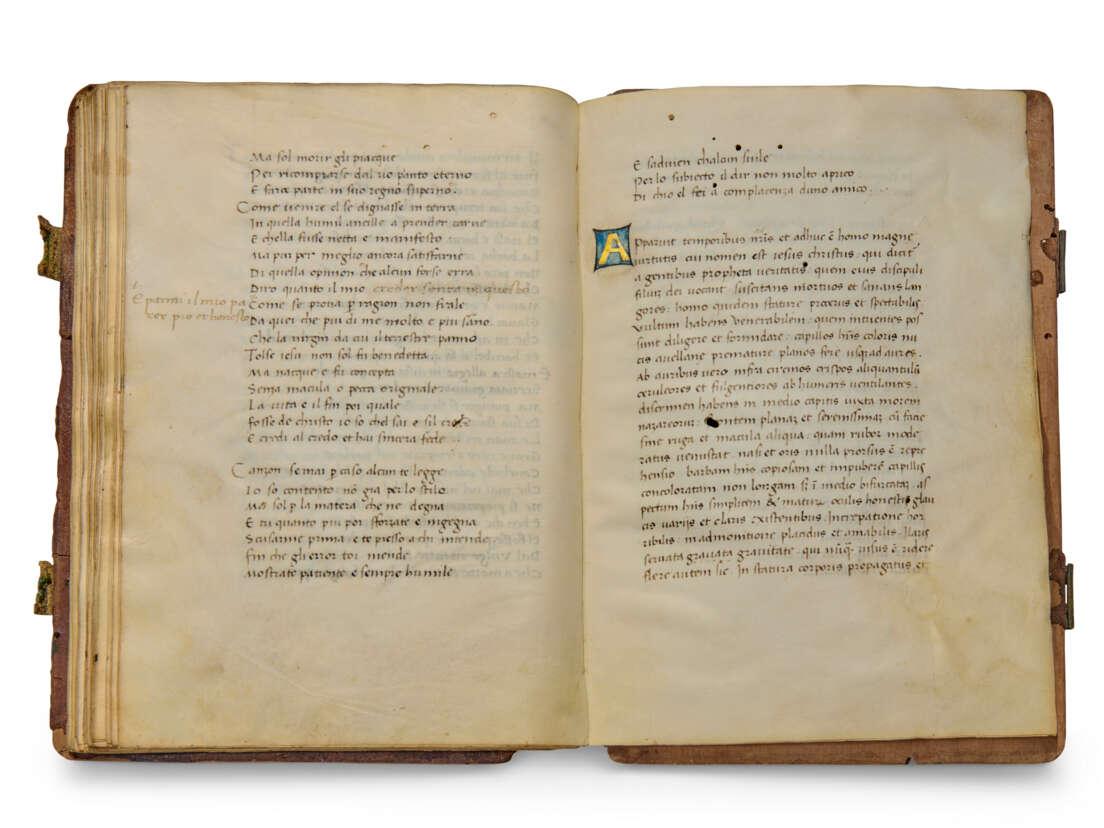 Ma sol morir gli piacque
Per ricomprarse dal rio pianto eterno
E farce parte in suo regno superno.
Come uenire el se dignasse in terra
In quella humil ancille a prender carne
E chella fusse netta e manifesto
Ma pur per meglio ancora satisfarne
Di quella opinion che alcun forse erra
Diro quanto il mio creder sonra in questo
È parmi il mio pa
rer pio et honesto
Come se proua p ragion non frale
Da quei che piu di me molto e piu sano.
Che la uirgin da cui il terrestre panno
Tolse iesu non sol fu benedetta.
Ma nacque e fu concepta
Senza macula o pecca originale
La uita e il fin poi quale
Fosse de christo io so chel sai e sil
E credi al credo et hai sincera fede
Canzon se mai p caso alcun te legge
Io so contento nõ gia per lo stilo
Ma sol p la matera che ne degna
E tu quanto piu poi sforzate e ingegna
Scusarme prima e te presso a chi intende
Fin che gli error toi mende
Mostrate patiente e sempre humile
E sadiuien chalcun suile
Per lo subiecto il dir non molto aprico
Di chio el fei a complacenza duno amico.
Apparuit temporibus nr̃is et adhuc ẽ homo magne
uirtutis cui nomen est iesus christus qui dicit̃
a gentibus propheta ueritatis quem eius discipuli
filiuz dei uocant suscitans mortuos et sanans lan
gores: homo quidem stature procerus et spectabilis
Vultum habens uenerabilem: quem intuentes pos
sunt diligere et formidare: capillos hñs coloris nu
cis auellane premature planos fere usqz ad aures.
Ab auribus uero infra cirennos crispos aliquantulũ
ceruleores et fulgentiores ab humeris uentilantes.
discrimen habens in medio capitis iuxta morem
nazareoruz: frontem planaz et serenissimaz cũ facie
sine ruga et macula aliqua: quam rubor mode
ratus uenustat. nasi et oris nulla prorsus ẽ repre
hensio. barbam hñs copiosam et impuberẽ capillis
concoloratam non longam sz ĩ medio bifurcataz. as
pectum hñs simplicem & maturz oculis honestis glau
cis uarijs et claris existentibus. Increpatione hor
ribilis: in admonitione placidus et amabilis. Ilaris
seruata grauata grauitate. qui nũqz uisus ẽ ridere
flere autem sic. In statura corporis propagatus et